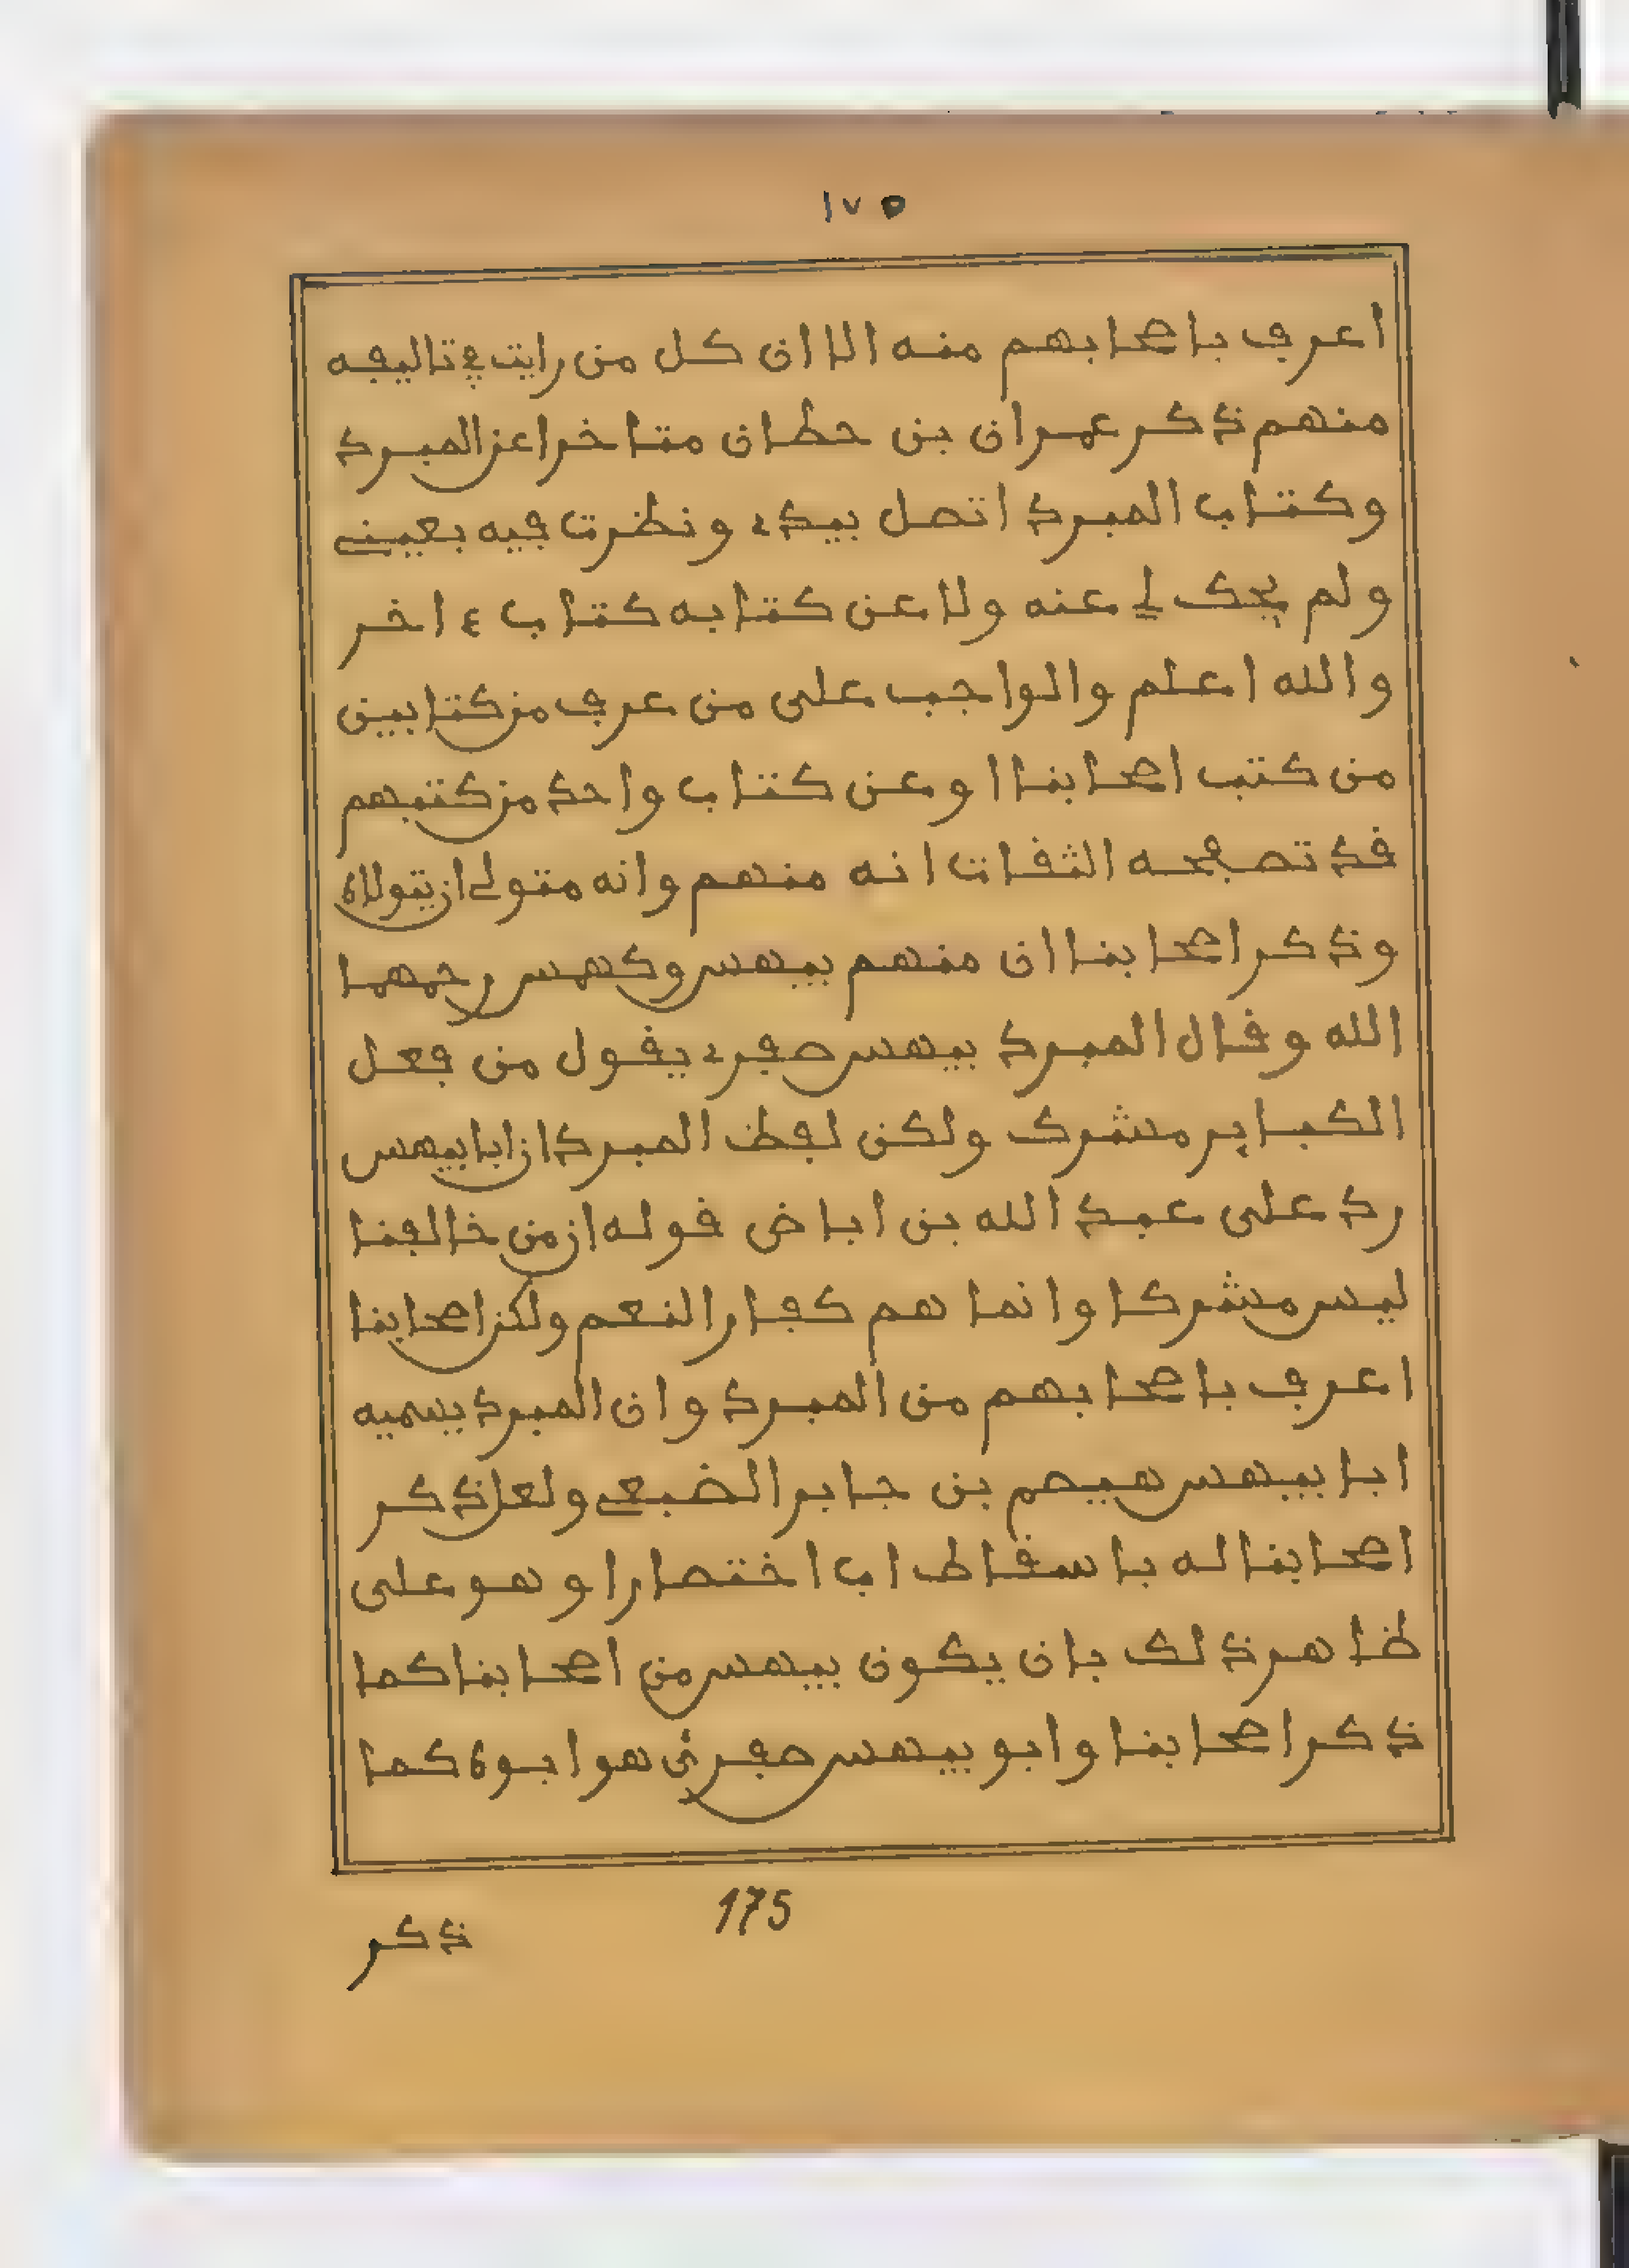 ١٧٥
اعرف باصحابهم منه الا ان كل من رايت في تاليفه
منهم ذكر عمران بن حطان متاخرا عن المبرد
وكتاب المبرد اتصل بيدي ونظرت فيه بعيني
ولم يحك لي عنه ولا عن كتابه كتاب ء اخر
والله اعلم والواجب على من عرف من كتابين
من كتب اصحابنا او عن كتاب واحد من كتبهم
قد تصفحه الثقات انه منهم وانه متولى ان يتولاه
وذكر اصحابنا ان منهم بيهس وكهمس رحمهما
الله وقال المبرد بيهس صفري يقول من فعل
الكباير مشرك ولكن لفظ المبرد ان ابا بيهس
رد على عبد الله بن اباض قوله ان من خالفنا
ليس مشركا وانما هم كفار النعم ولكن اصحابنا
اعرف باصحابهم من المبرد وان المبرد يسميه
ابا بيهس هيصم بن جابر الضبعي ولعل ذكر
اصحابنا له باسقاط اب اختصارا وهو على
ظاهر ذلك بان يكون بيهس من اصحابنا كما
ذكر اصحابنا وابو بيهس صفرئ هو ابوه كما
175
ذكر